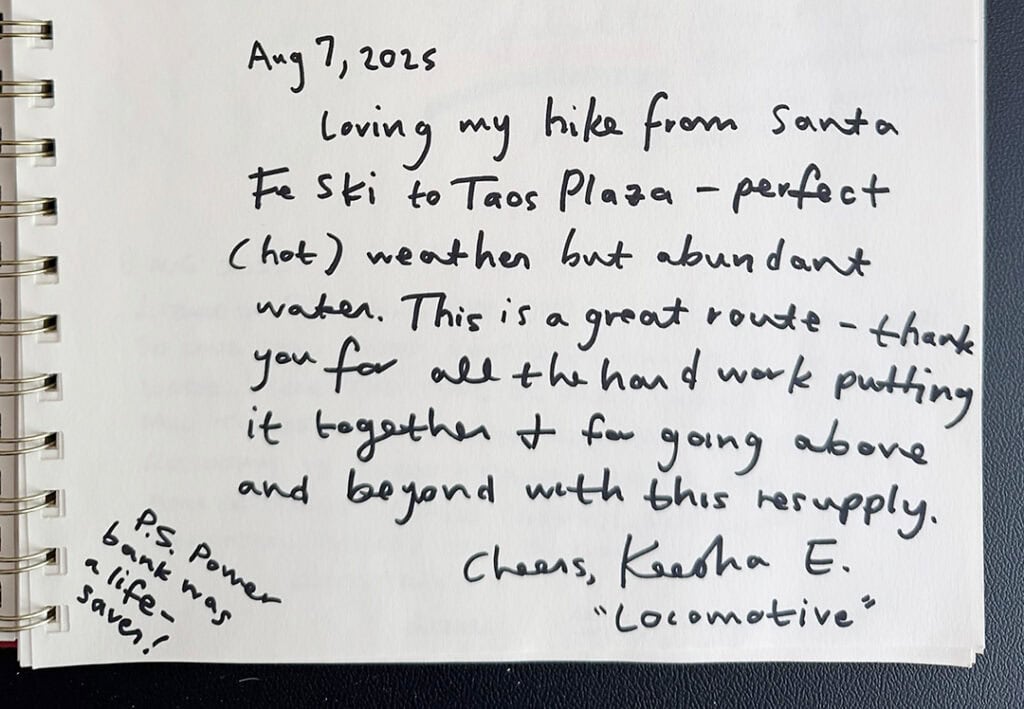 Aug 7, 2025
Loving my hike from Santa
Fe Ski to Taos Plaza – perfect
(hot) weather but abundant
water. This is a great route – thank
you for all the hard work putting
it together + for going above
and beyond with this resupply.
Cheers, Keesha E.
"Locomotive"
P.S. Power
bank was
a life-
saver!